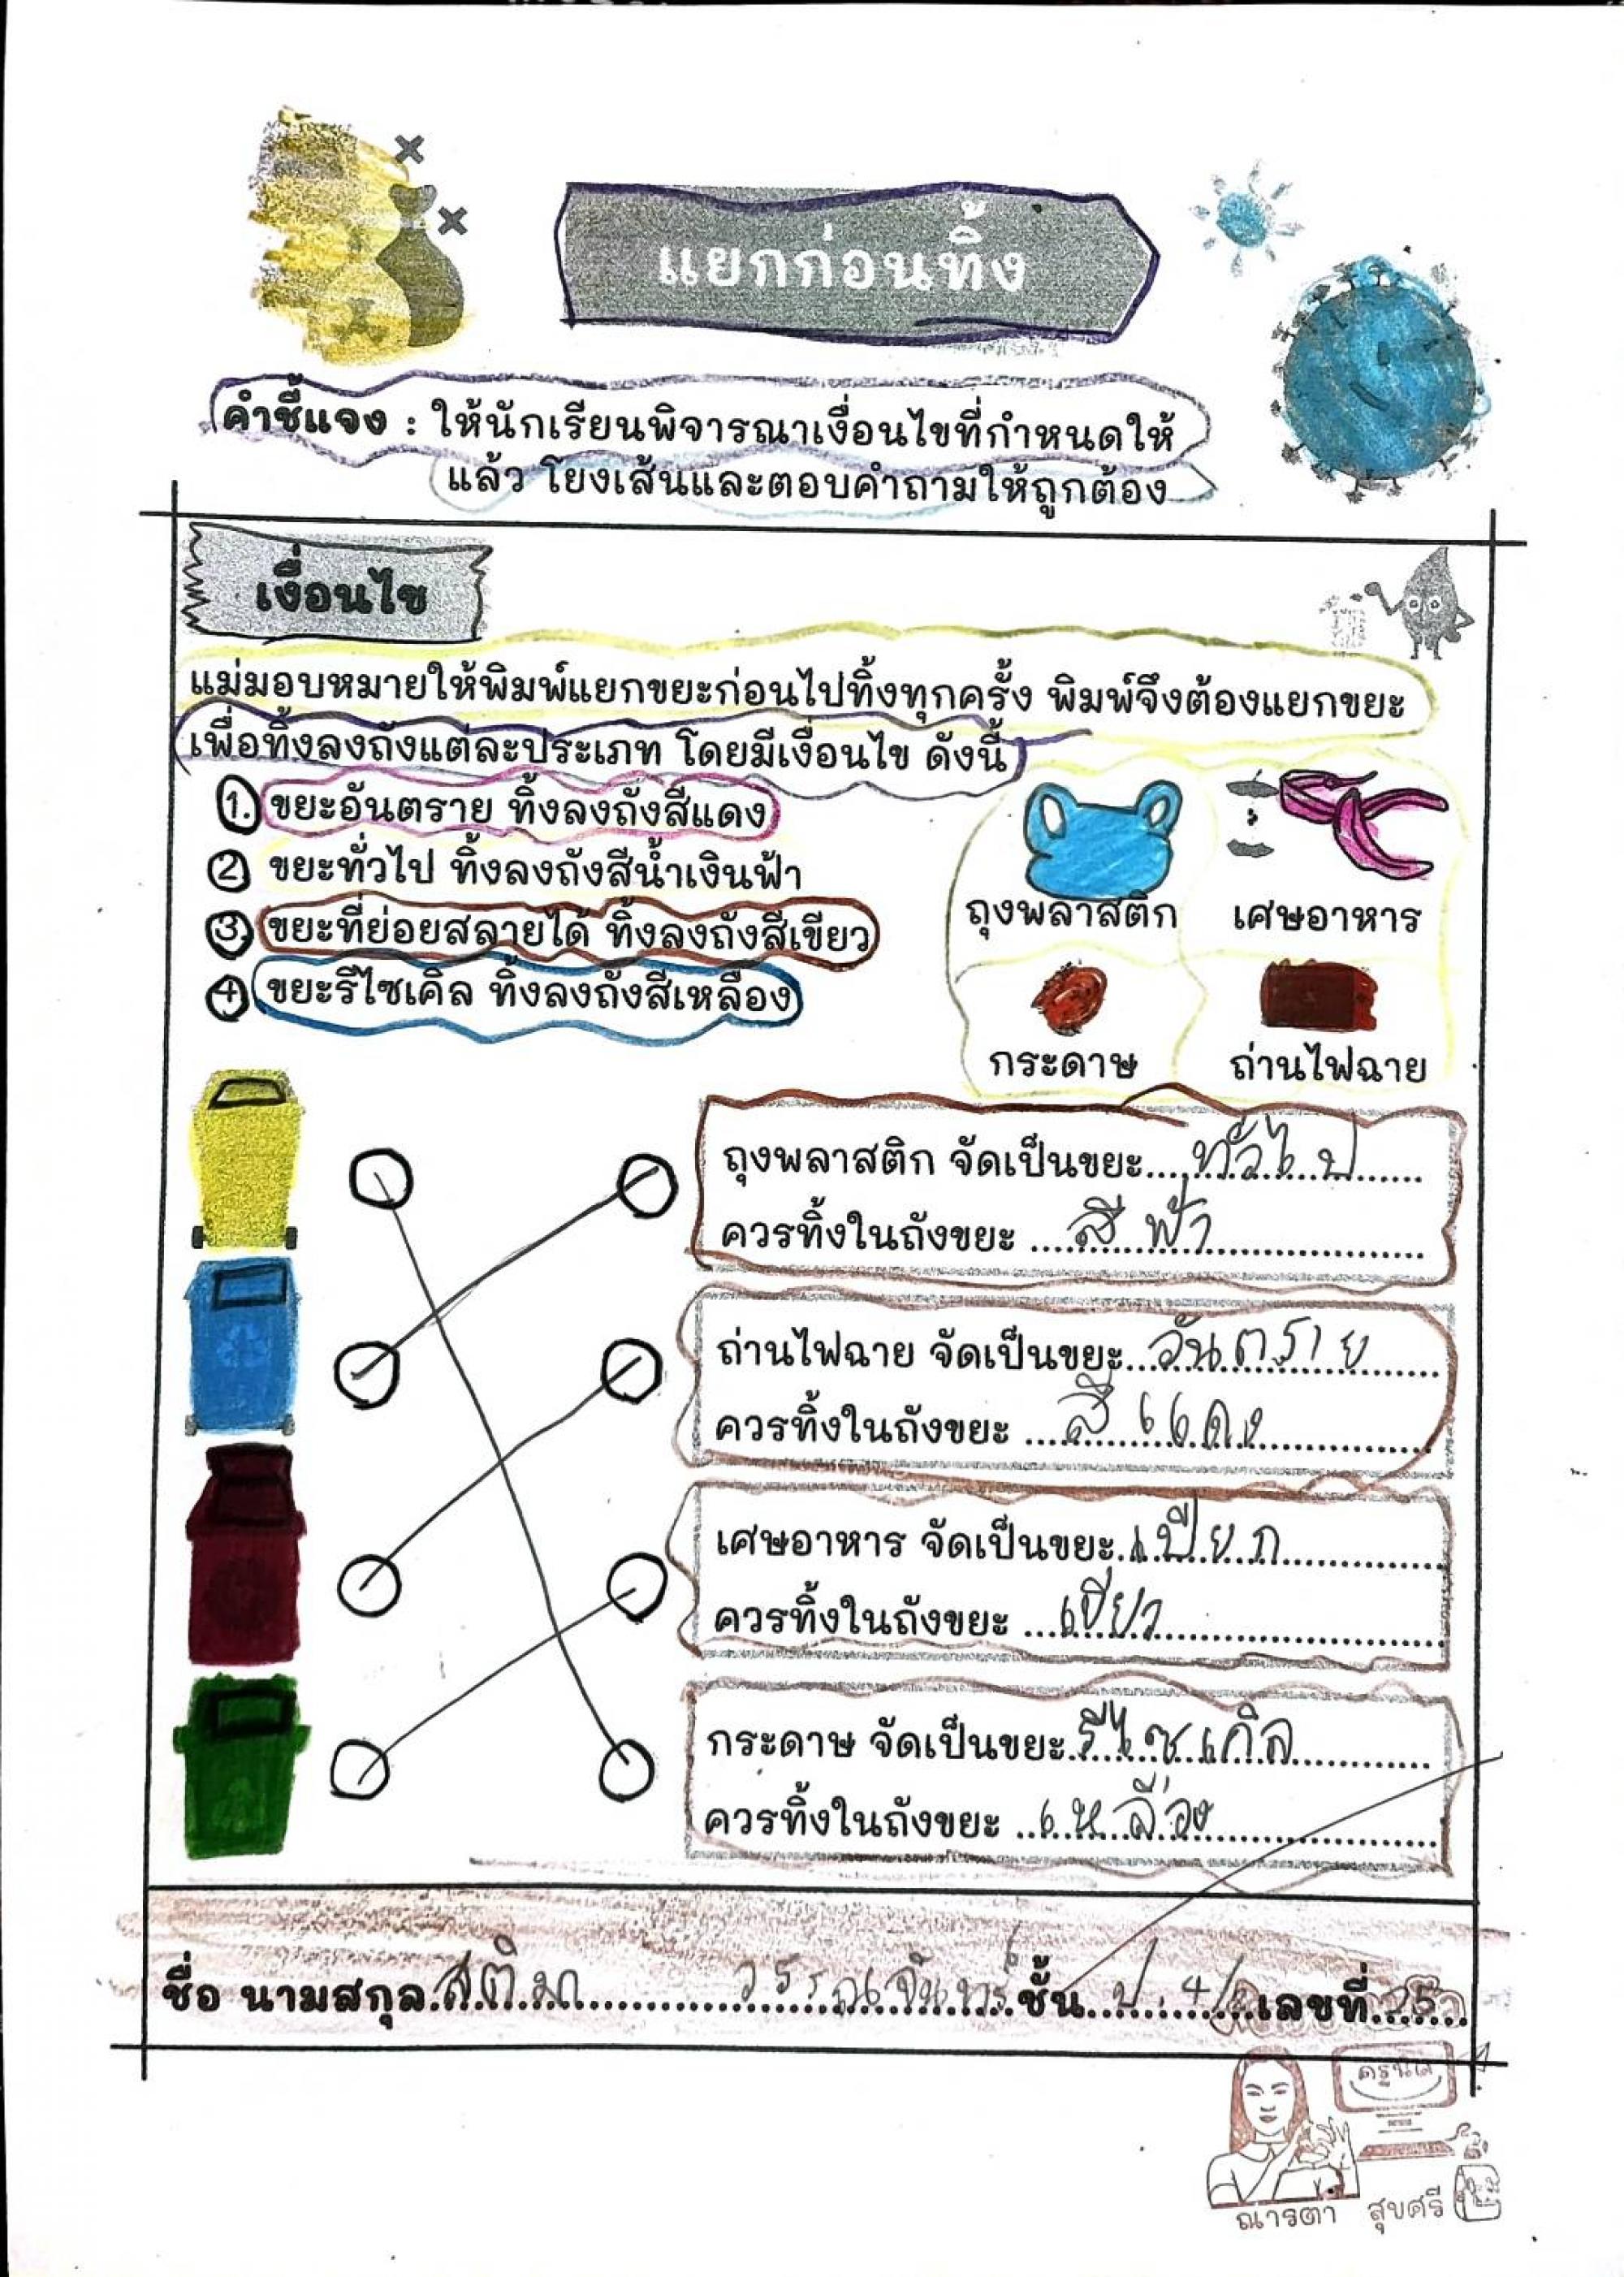 แยกก่อนทิ้ง
คำชี้แจง : ให้นักเรียนพิจารณาเงื่อนไขที่กำหนดให้
แล้ว โยงเส้นและตอบคำถามให้ถูกต้อง
เงื่อนไข
แม่มอบหมายให้พิมพ์แยกขยะก่อนไปทิ้งทุกครั้ง พิมพ์จึงต้องแยกขยะ
เพื่อทิ้งลงถังแต่ละประเภท โดยมีเงื่อนไข ดังนี้
1. ขยะอันตราย ทิ้งลงถังสีแดง
2 ขยะทั่วไป ทิ้งลงถังสีน้ำเงินฟ้า
3 ขยะที่ย่อยสลายได้ ทิ้งลงถังสีเขียว
4 ขยะรีไซเคิล ทิ้งลงถังสีเหลือง
ถุงพลาสติก เศษอาหาร
กระดาษ ถ่านไฟฉาย
ถุงพลาสติก จัดเป็นขยะ....ทั่วไป......
ควรทิ้งในถังขยะ ....สีฟ้า......
ถ่านไฟฉาย จัดเป็นขยะ...อันตราย......
ควรทิ้งในถังขยะ ....สีแดง......
เศษอาหาร จัดเป็นขยะ...เปียก......
ควรทิ้งในถังขยะ ...เขียว......
กระดาษ จัดเป็นขยะ...รีไซเกิล......
ควรทิ้งในถังขยะ ...เหลือง......
ชื่อ นามสกุล... วรรณจันทร์...ชั้น...ป.4/...เลขที่...25...
ณารตา สุขศรี